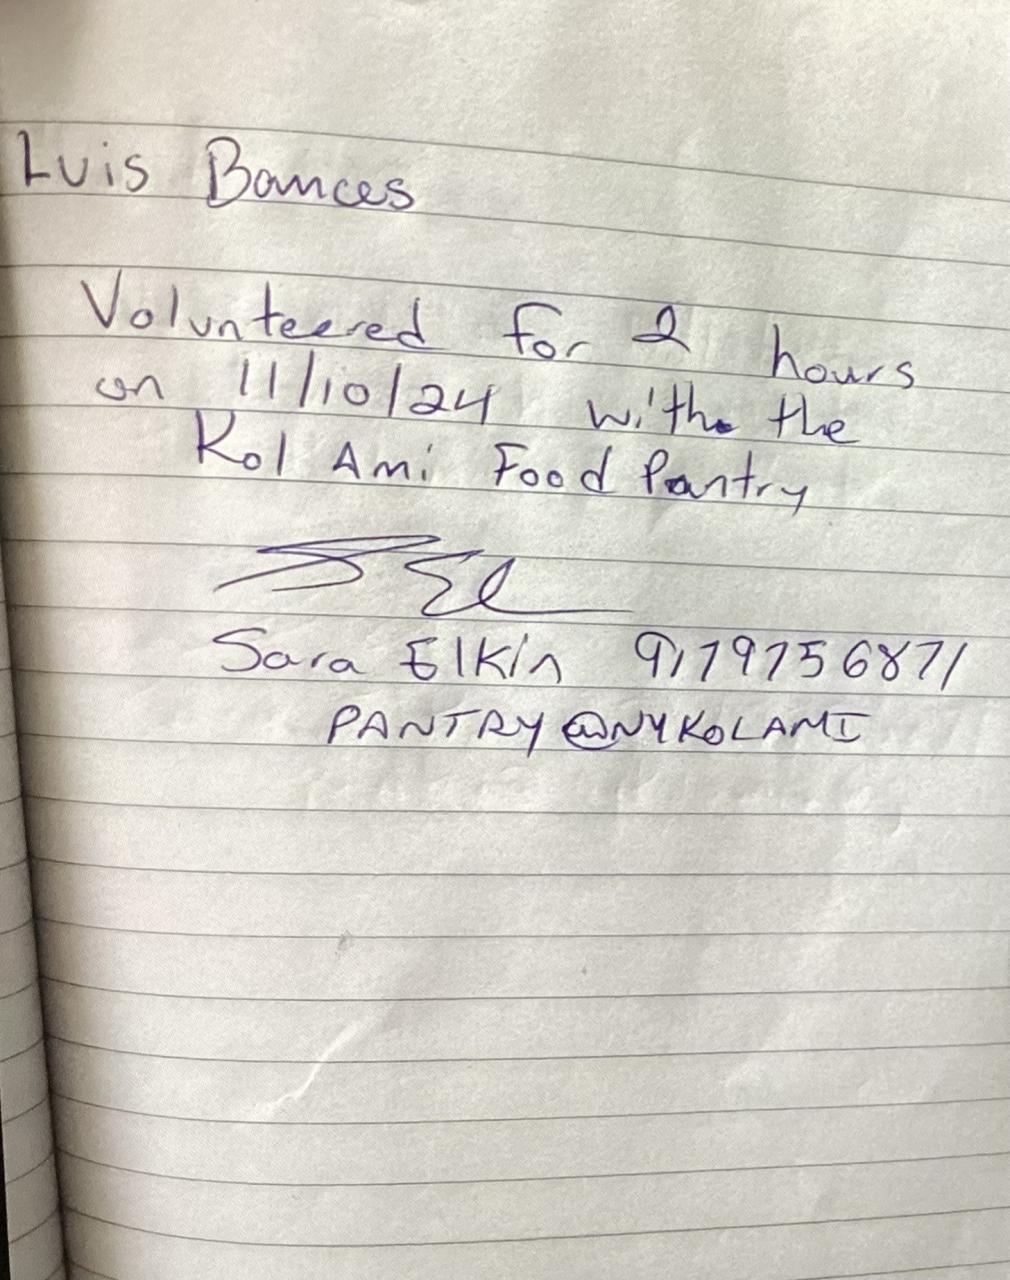 Luis Bances
Volunteered for 2 hours
on 11/10/24 with the
Kol Ami Food Pantry
Sara Elkin 9179756871
PANTRY@NYKOLAMI